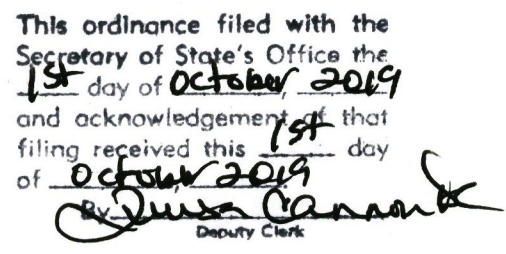 This ordinance filed with the
Secretary of State's Office the
1st day of October, 2019
and acknowledgement of that
filing received this 1st day
of October 2019.
By Cannon
Deputy Clerk